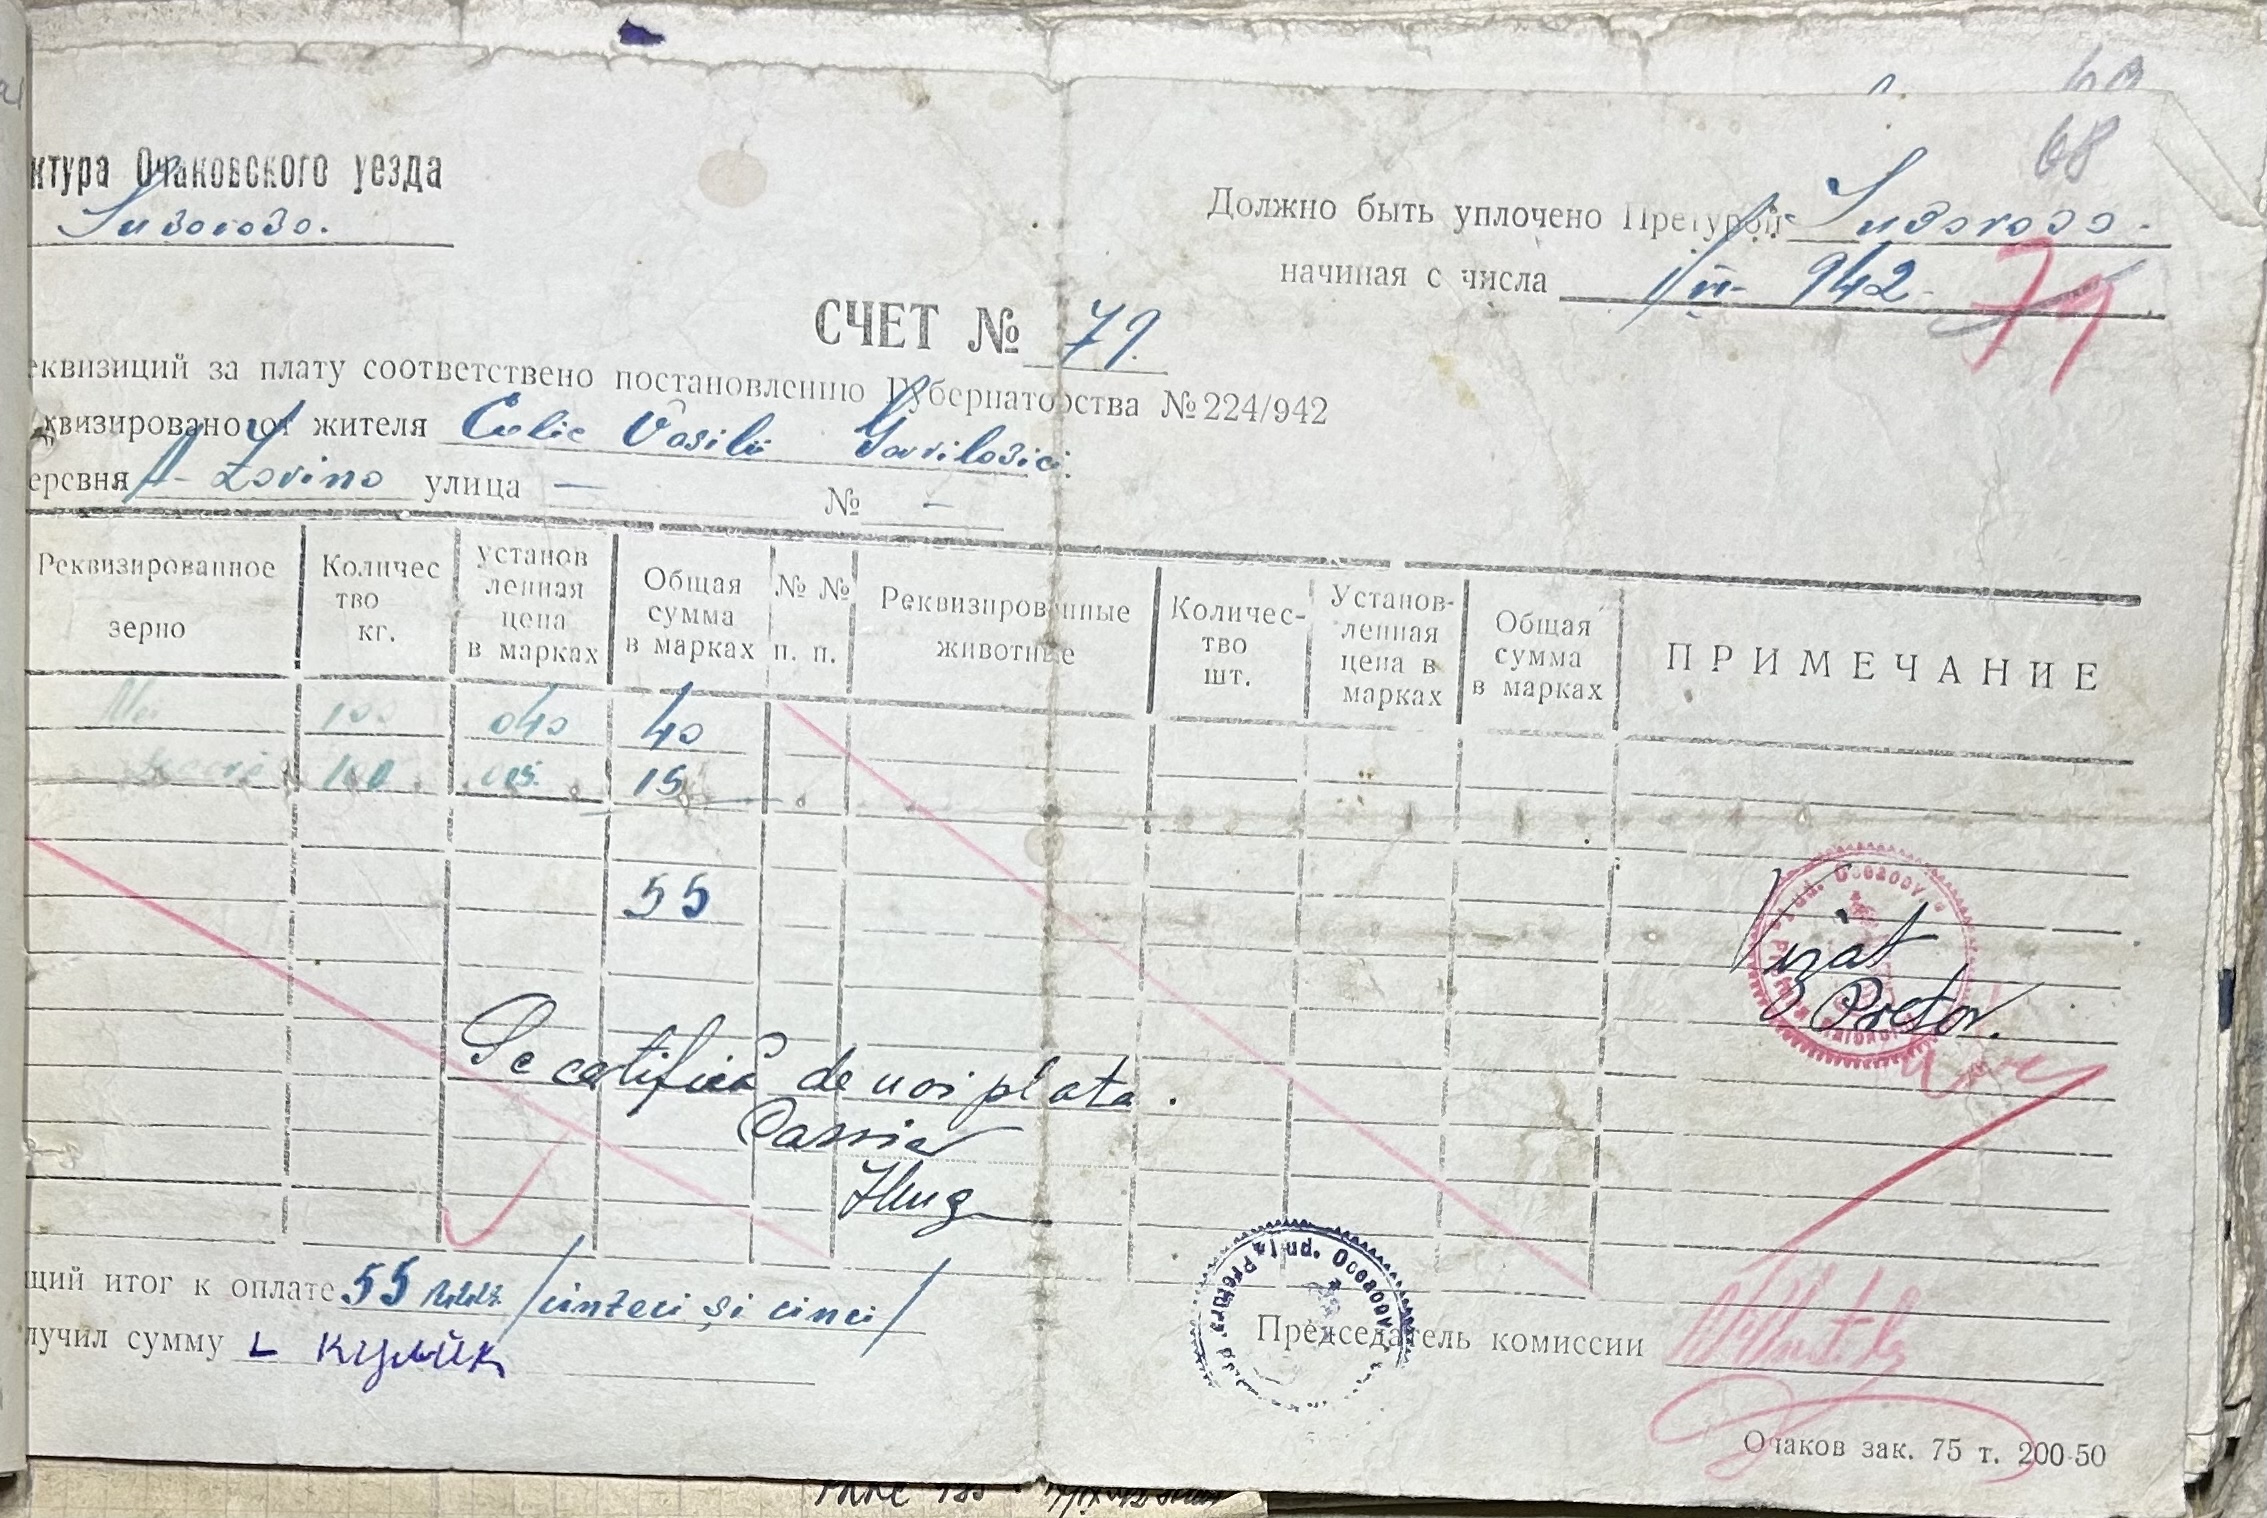 68
ктура Очаковского уезда
Suvorovo.
Должно быть уплочено Претурой Suvorovo.
начиная с числа 1/VI- 942
71
СЧЕТ № 71.
еквизиций за плату соответствено постановлению Губернаторства № 224/942
квизировано от жителя Culic Vasilii Gavrilovici.
еревня A-Zorino улица — № —
Реквизированное зерно
Количес тво кг.
установ ленная цена в марках
Общая сумма в марках
№ № п. п.
Реквизированные животные
Количес- тво шт.
Установ- ленная цена в марках
Общая сумма в марках
ПРИМЕЧАНИЕ
100 040 40
secară 100 015 15
55
Jud. Oceacov
Vizat
Pretor.
Se certifică de noi plata.
Casier
щий итог к оплате 55 /cinzeci și cinci/
лучил сумму Кулик
Pretura Jud. Oceacov
Председатель комиссии
Очаков зак. 75 т. 200-50